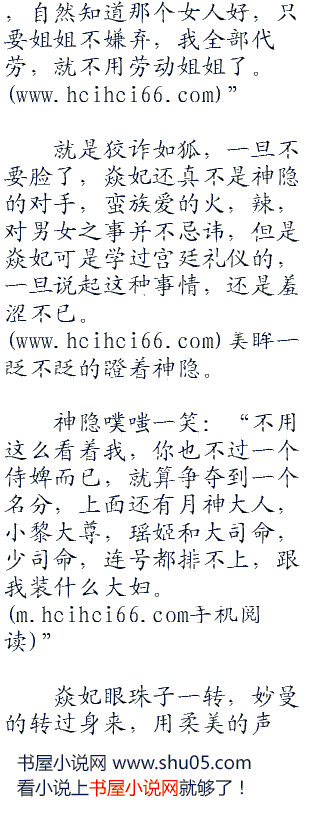 ，自然知道那个女人好，只
要姐姐不嫌弃，我全部代
劳，就不用劳动姐姐了。
(www.hcihci66.com)”
就是狡诈如狐，一旦不
要脸了，焱妃还真不是神隐
的对手，蛮族爱的火，辣，
对男女之事并不忌讳，但是
焱妃可是学过宫廷礼仪的，
一旦说起这种事情，还是羞
涩不已。
(www.hcihci66.com)美眸一
眨不眨的瞪着神隐。
神隐噗嗤一笑：“不用
这么看着我，你也不过一个
侍婢而已，就算争夺到一个
名分，上面还有月神大人，
小黎大尊，瑶姬和大司命，
少司命，连号都排不上，跟
我装什么大妇。
(m.hcihci66.com手机阅
读)”
焱妃眼珠子一转，妙曼
的转过身来，用柔美的声
书屋小说网 www.shu05.com
看小说上书屋小说网就够了！